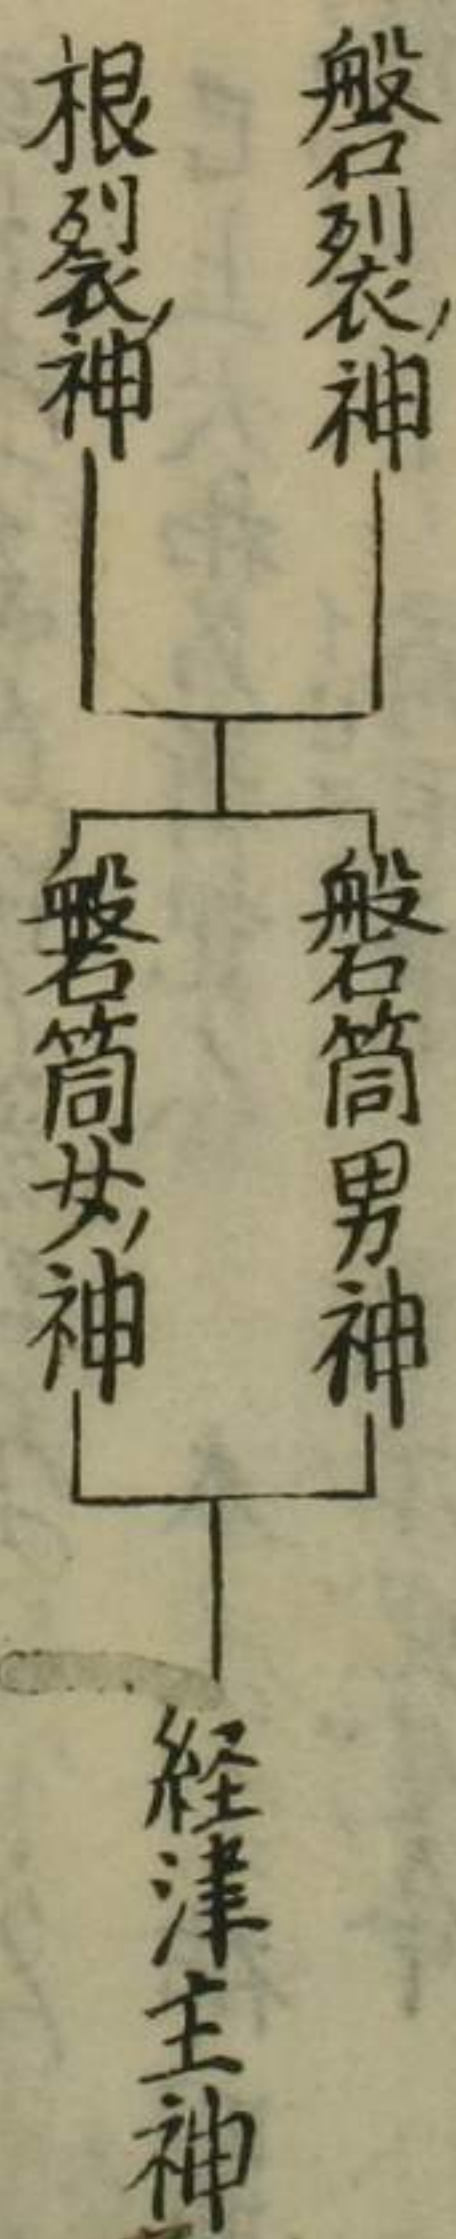 磐裂神
根裂神
磐筒男神
磐筒女神
経津主神